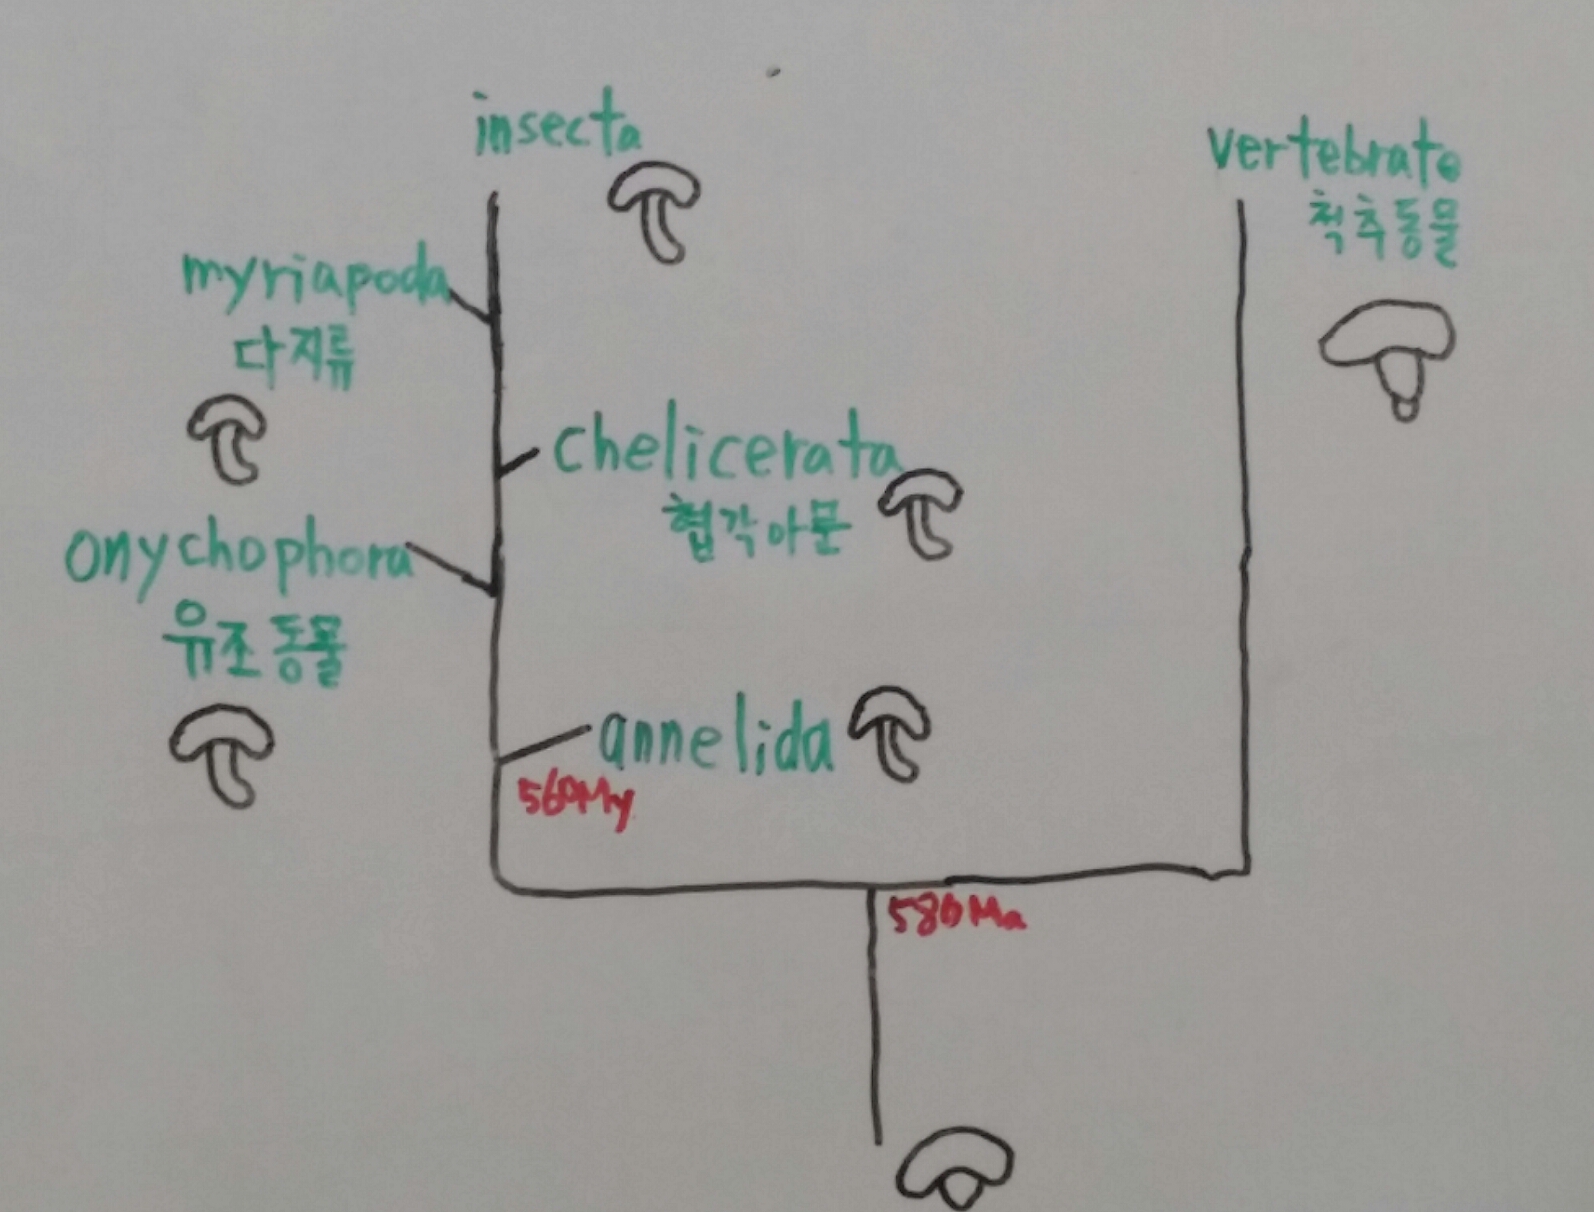 insecta
vertebrate
척추동물
myriapoda
다지류
chelicerata
협각아문
onychophora
유조동물
annelida
560My
580Ma